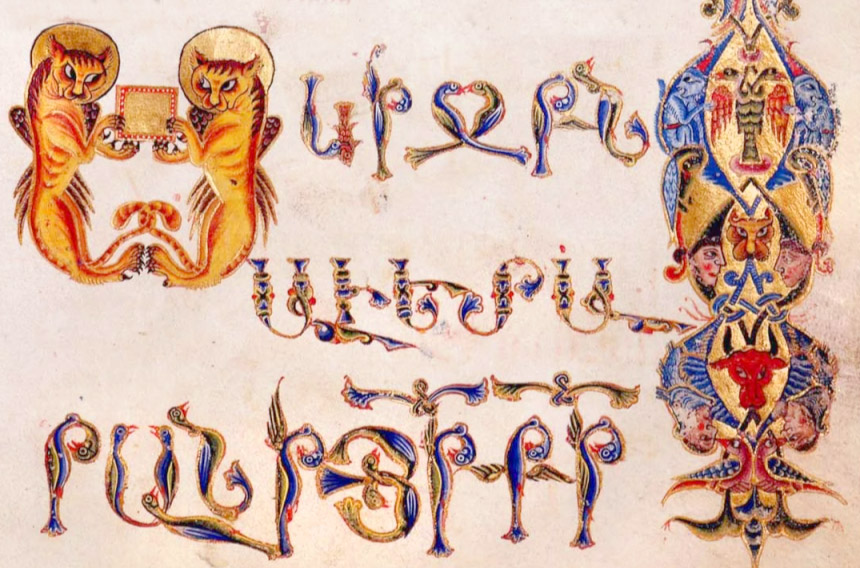 ՍԿԻԶԲՆ
ԱՒԵՏԱ
ՐԱՆԻ ՅԻ ՔԻ